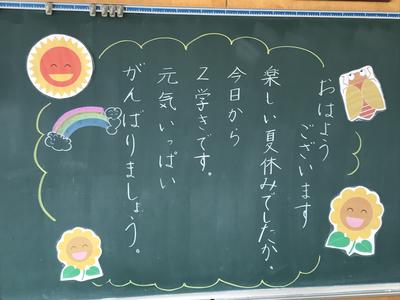 おはよう
ございます
楽しい夏休みでしたか。
今日から
2学きです。
元気いっぱい
がんばりましょう。